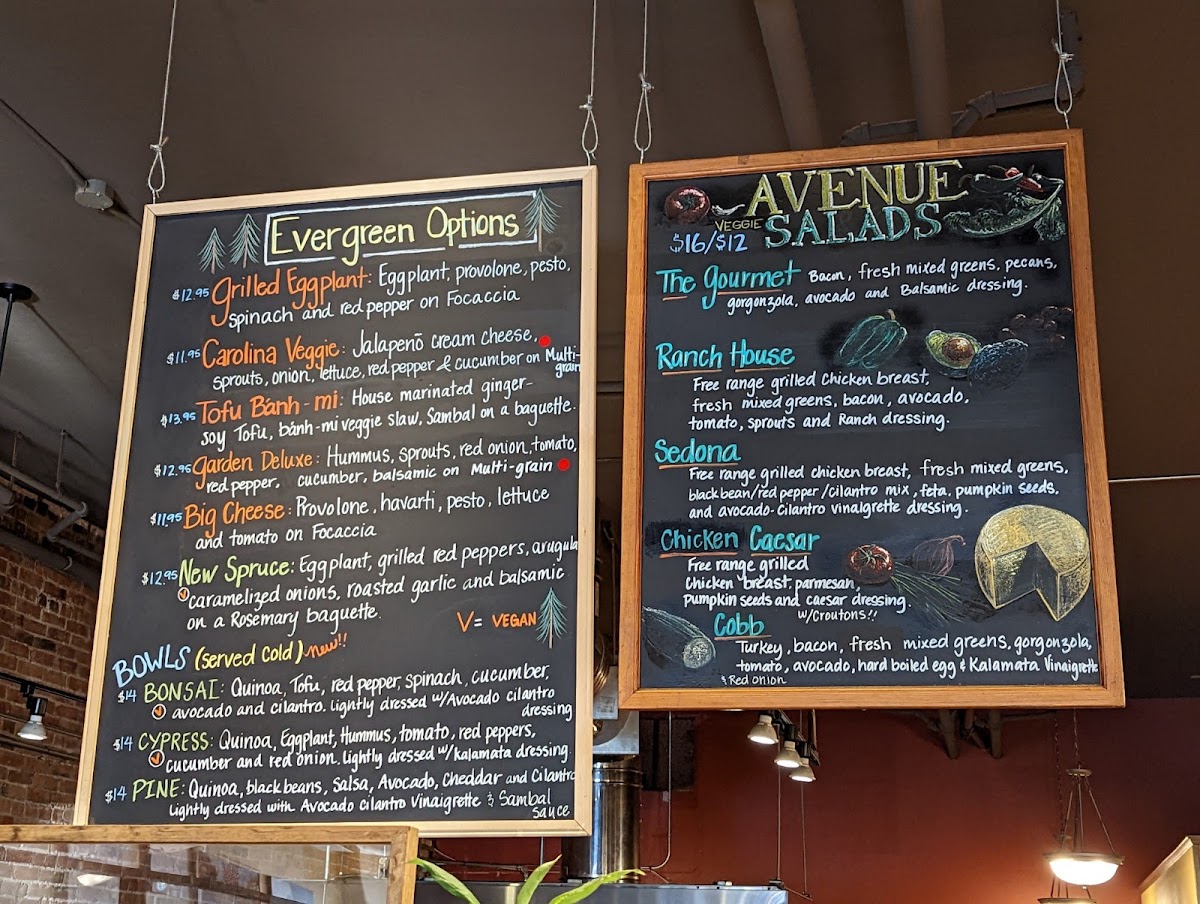 Evergreen Options
$12.95 Grilled Eggplant: Eggplant, provolone, pesto,
spinach and red pepper on Focaccia
$11.95 Carolina Veggie: Jalapeño cream cheese,
sprouts, onion, lettuce, red pepper & cucumber on Multi-
grain
$13.95 Tofu Bánh-mi: House marinated ginger-
soy Tofu, bánh-mi veggie slaw, Sambal on a baguette.
$12.95 Garden Deluxe: Hummus, sprouts, red onion, tomato,
red pepper, cucumber, balsamic on Multi-grain
$11.95 Big Cheese: Provolone, havarti, pesto, lettuce
and tomato on Focaccia
$12.95 New Spruce: Eggplant, grilled red peppers, arugula
V caramelized onions, roasted garlic and balsamic
on a Rosemary baguette.
V= VEGAN
BOWLS (served cold) new!!
$14 BONSAI: Quinoa, Tofu, red pepper, spinach, cucumber,
V avocado and cilantro. Lightly dressed w/Avocado cilantro
dressing
$14 CYPRESS: Quinoa, Eggplant, Hummus, tomato, red peppers,
V cucumber and red onion. Lightly dressed w/kalamata dressing
$14 PINE: Quinoa, black beans, Salsa, Avocado, Cheddar and Cilantro
Lightly dressed with Avocado cilantro Vinaigrette & Sambal
Sauce
AVENUE
VEGGIE SALADS
$16/$12
The Gourmet Bacon, fresh mixed greens, pecans,
gorgonzola, avocado and Balsamic dressing.
Ranch House
Free range grilled Chicken breast,
fresh mixed greens, bacon, avocado,
tomato, sprouts and Ranch dressing.
Sedona
Free range grilled chicken breast, fresh mixed greens,
black bean/red pepper/cilantro mix, feta, pumpkin seeds,
and avocado-Cilantro vinaigrette dressing.
Chicken Caesar
Free range grilled
Chicken breast, parmesan,
pumpkin seeds and caesar dressing.
w/Croutons!!
Cobb
Turkey, bacon, fresh mixed greens, gorgonzola,
tomato, avocado, hard boiled egg & Kalamata Vinaigrette
& Red onion